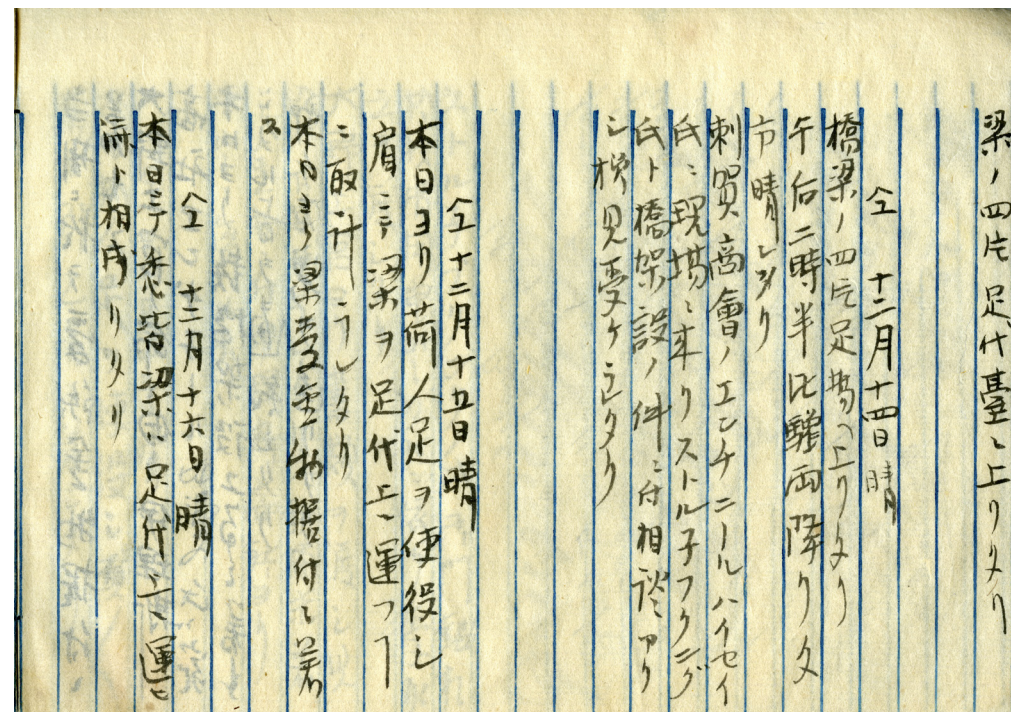 梁ノ四片足代臺ヘ上リタリ
仝 十二月十四日 晴
橋梁ノ四片足場ヘ上リタリ
午后二時半比驟雨降リタ
方晴レタリ
刺賀商會ノエンチニールハイセイ
氏ニ現場ヘ来リストル子フクニグ
氏ト橋架設ノ件ニ付相談アリ
シ様見受ケラレタリ
仝 十二月十五日 晴
本日ヨリ荷人足ヲ使役シ
肩ニテ梁ヲ足代上ヘ運フ
ニ取計ラレタリ
本日ヨリ梁受金物据付ヘ着
ス
仝 十二月十六日 晴
本日ニテ悉皆梁ハ足代上ヘ運ヒ
済ト相成リタリ